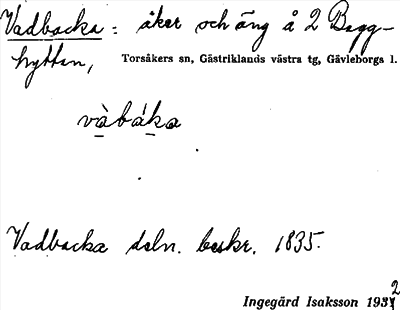 Vadbacka: åker och äng å 2 Bagg-
hyttan,
Torsåkers sn, Gästriklands västra tg, Gävleborgs l.
vàbáka
Vadbacka deln. beskr. 1835.
Ingegärd Isaksson 1932